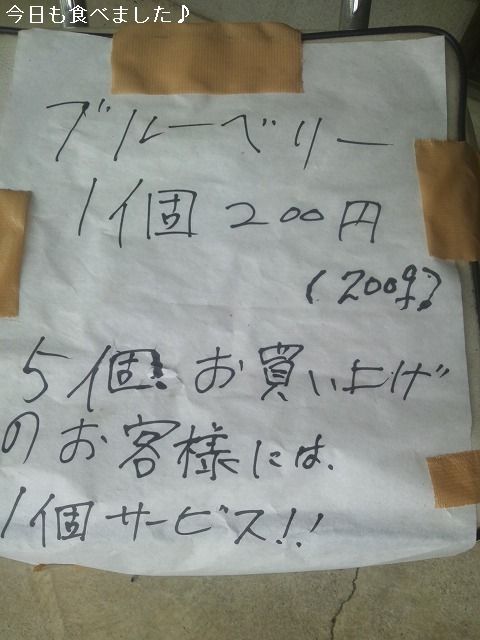 今日も食べました♪
ブルーベリー
1個 200円
(200g)
5個 お買い上げ
のお客様には、
1個サービス!!